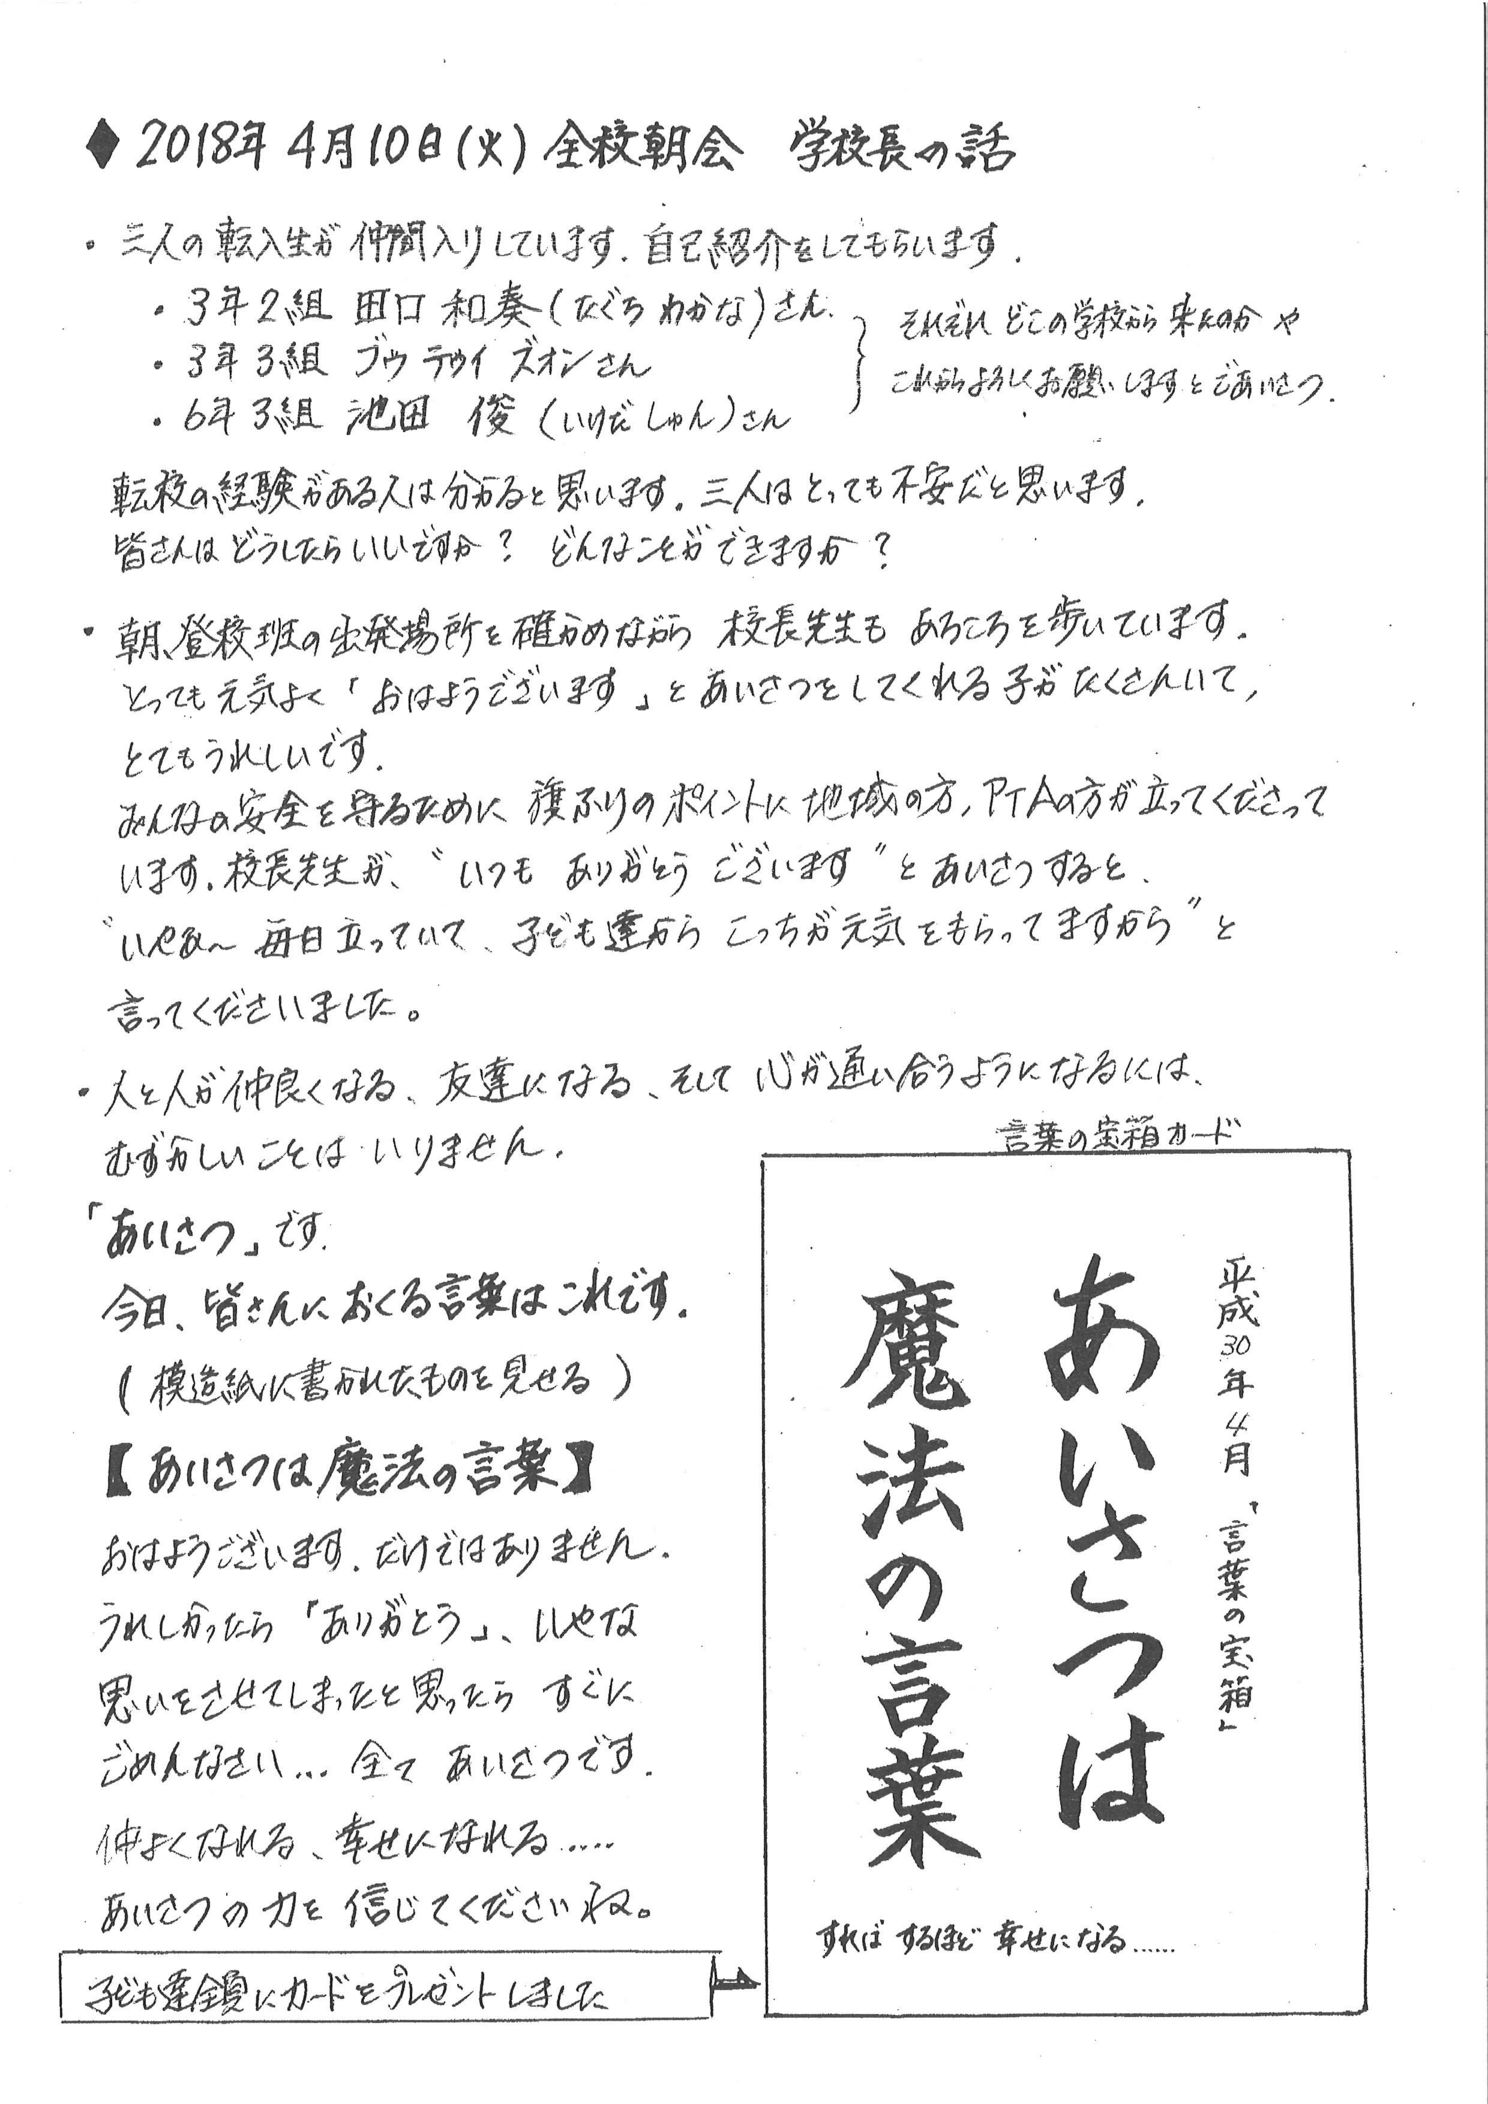 ◆ 2018年 4月10日(火) 全校朝会 学校長の話
・三人の転入生が仲間入りしています. 自己紹介をしてもらいます.
・3年2組 田口 和奏(たぐち わかな)さん.
・3年3組 ブゥ テゥイ ズオンさん
・6年3組 池田 俊(いけだ しゅん)さん
それぞれ どこの学校から 来たのか や
これからよろしくお願いしますと ごあいさつ.
転校の経験がある人は分かると思います. 三人はとっても不安だと思います.
皆さんは どうしたらいいですか? どんなことができますか?
・朝、登校班の出発場所を確かめながら 校長先生も あちこちを歩いています.
とっても元気よく「おはようございます」とあいさつをしてくれる子がたくさんいて,
とてもうれしいです.
みんなの安全を守るために 旗ふりのポイントに地域の方, PTAの方が立ってくださって
います. 校長先生が、〝いつも ありがとう ございます〟とあいさつすると、
〝いやぁ〜 毎日立っていて、子ども達から こっちが元気をもらってますから〟と
言ってくださいました。
・人と人が仲良くなる、友達になる、そして 心が通い合うようになるには、
むずかしいことは いりません.
「あいさつ」です.
今日、皆さんに おくる言葉は これです.
(模造紙に書かれたものを見せる)
【あいさつは魔法の言葉】
おはようございます. だけではありません.
うれしかったら「ありがとう」、いやな
思いをさせてしまったと思ったら すぐに
ごめんなさい… 全て あいさつです.
仲よくなれる、幸せになれる‥‥
あいさつの力を 信じてくださいね。
子ども達全員にカードをプレゼントしました
言葉の宝箱カード
平成30年4月「言葉の宝箱」
あいさつは
魔法の言葉
すれば するほど 幸せになる……